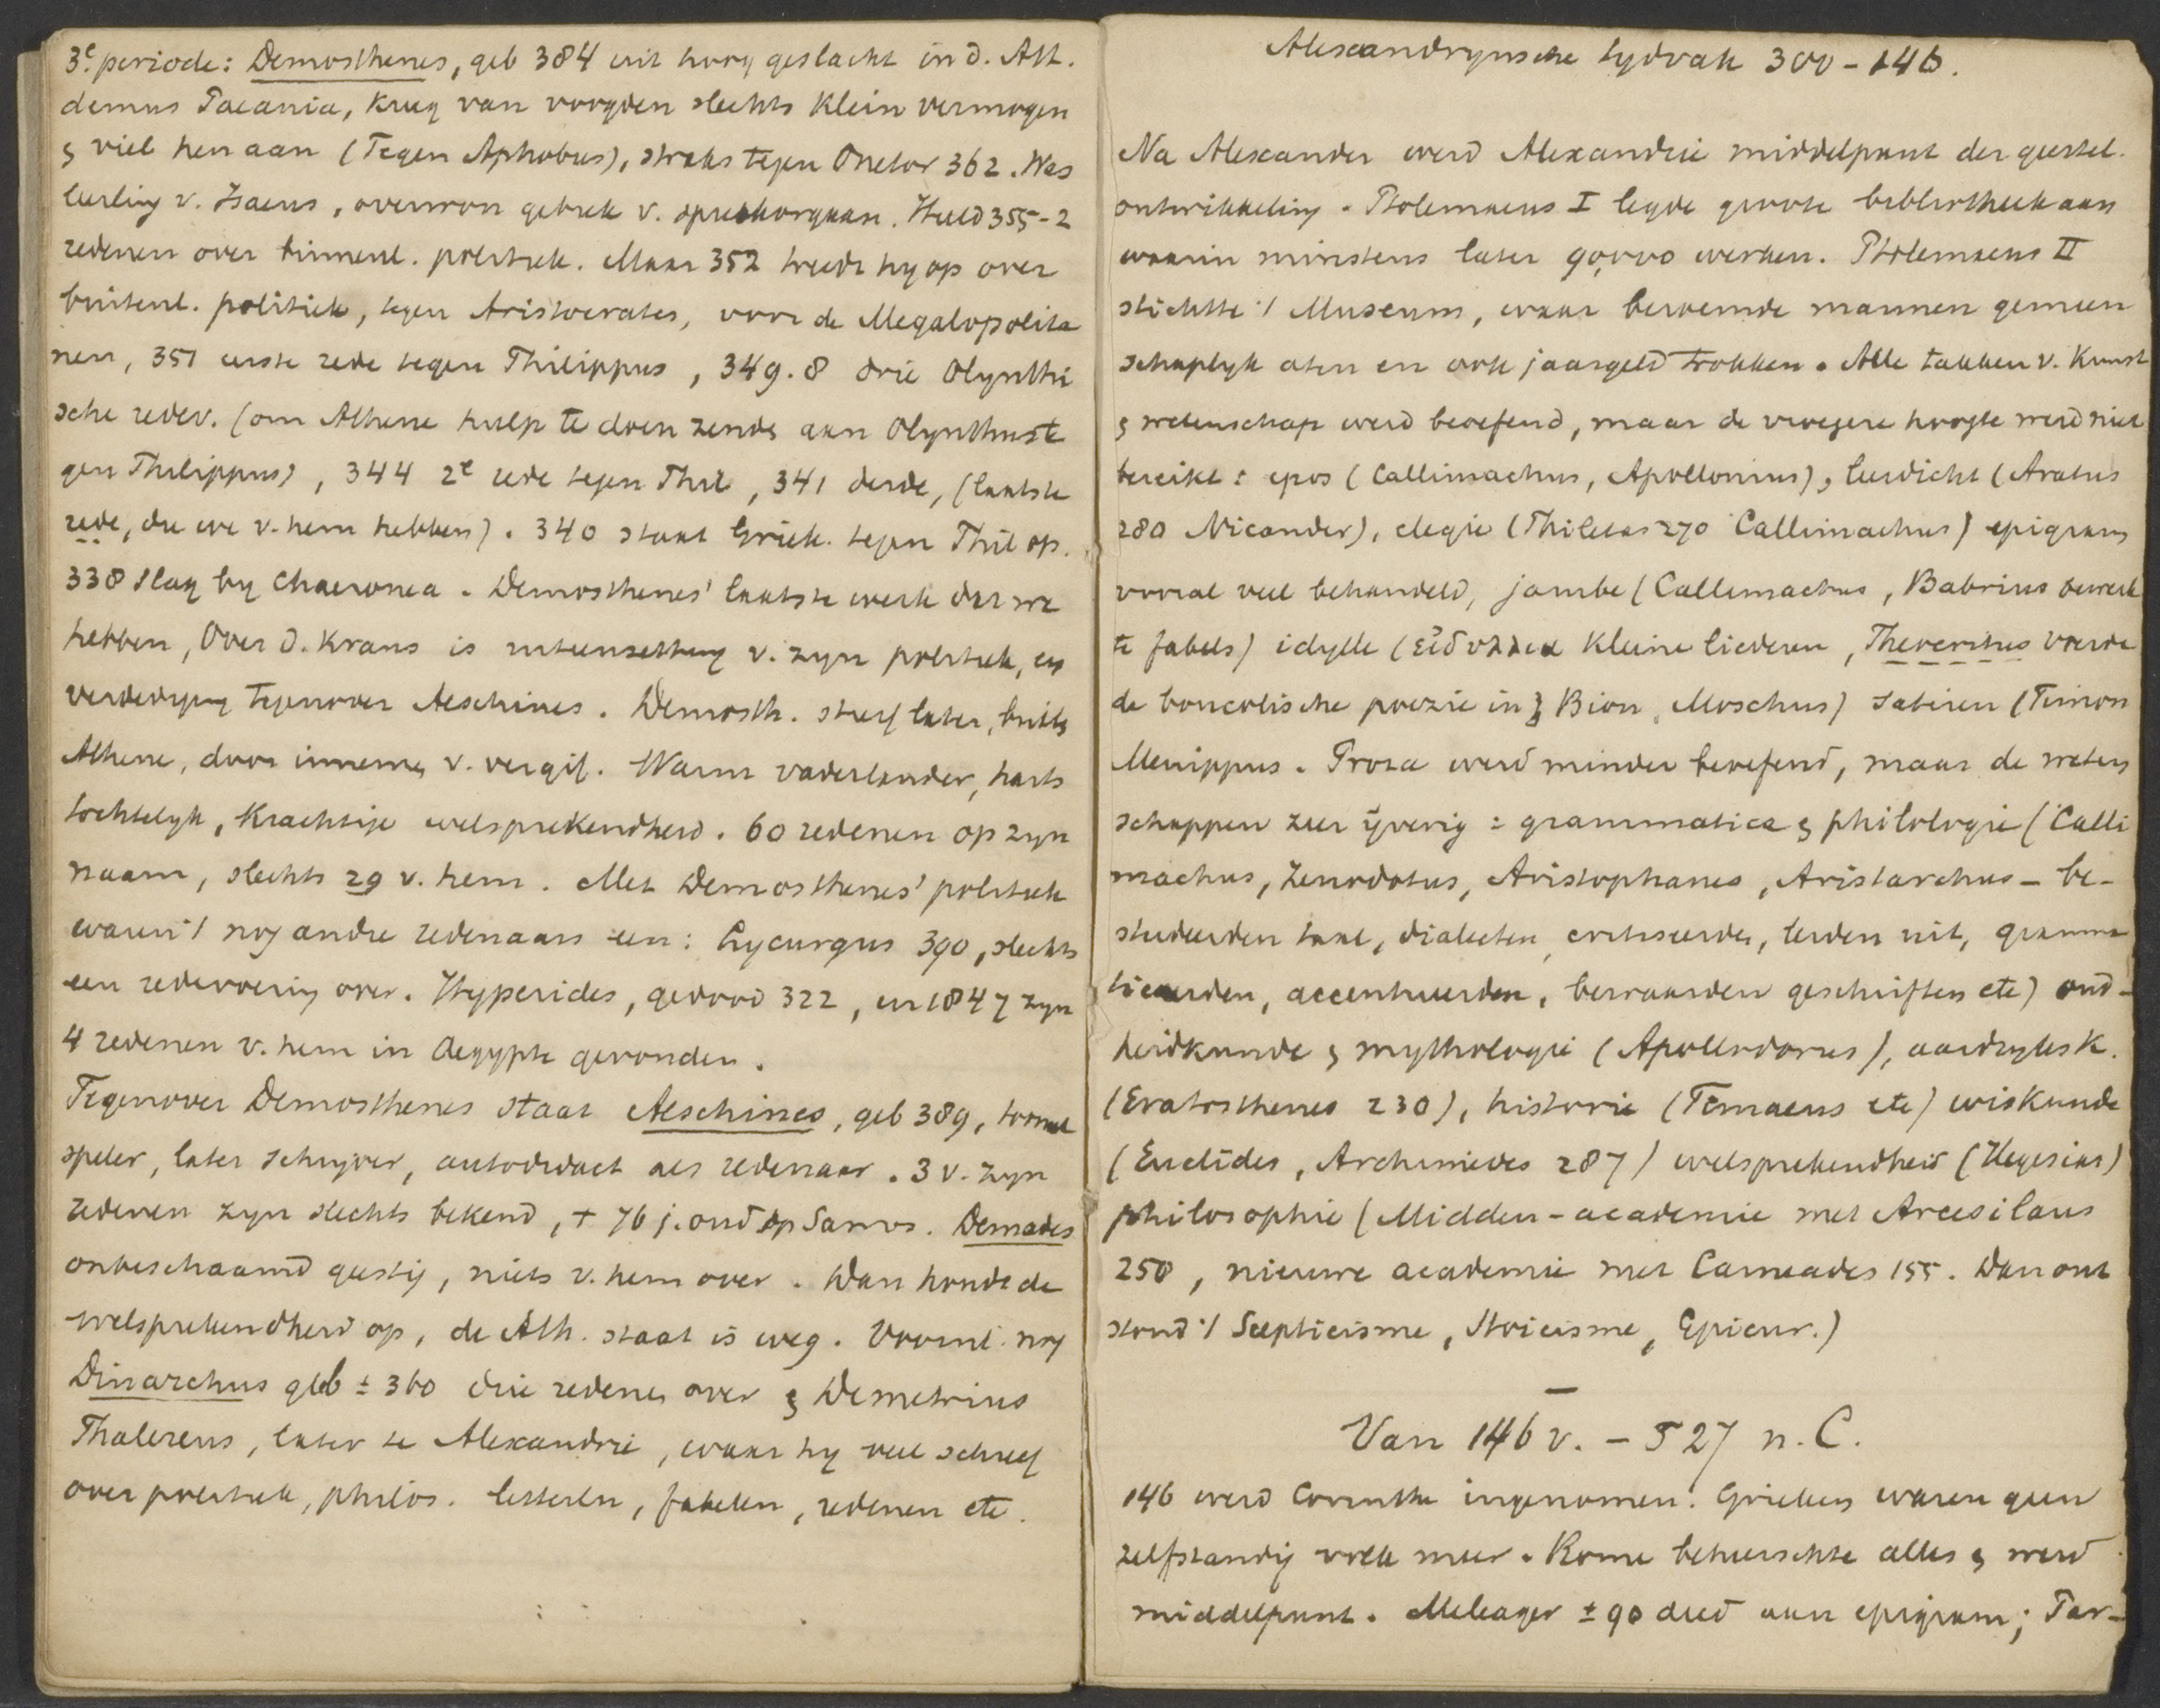 3e. periode: Demosthenes, geb 384 uit hoog geslacht in d. Ath.
demus Paeania, kreeg van voogden slechts klein vermogen
& viel hen aan (Tegen Aphobus), straks tegen Onetor 362. Was
leerling v. Isaeus, overwon gebrek v. spreekorgaan. Hield 355-2
redenen over binnenl. politiek. Maar 352 treedt hy op over
buitenl. politiek, tegen Aristocrates, voor de Megalopolita
nen, 351 eerste rede tegen Philippus, 349.8 drie Olynthi
sche redev. (om Athene hulp te doen zende aan Olynthus te
gen Philippus), 344 2e rede tegen Phil, 341 derde, (laatste
rede, die we v. hem hebben). 340 staat Griek. tegen Phil op.
338 slag by Chaeronea. Demosthenes' laatste werk dat we
hebben, Over d. krans is uiteenzetting v. zyn politiek, en
verdediging tegenover Aeschines. Demosth. stierf later, buite
Athene, door inneme v. vergif. Warm vaderlander, harts
tochtelyk, krachtige welsprekendheid. 60 redenen op zyn
naam, slechts 29 v. hem. Met Demosthenes' politiek
waren 't nog andre redenaars een: Lycurgus 390, slechts
een redevoering over. Hyperides, gedood 322, in 1847 zyn
4 redenen v. hem in Aegypte gevonden.
Tegenover Demosthenes staat Aeschines, geb 389, tooneel
speler, later schryver, autodidact als redenaar. 3 v. zyn
redenen zyn slechts bekend, + 76 j. oud op Samos. Demades
onbeschaamd geestig, niets v. hem over. Dan houdt de
welsprekendheid op, de Ath. staat is weg. Voornl. nog
Dinarchus geb ± 360 drie redenen over & Demetrius
Phalereus, later te Alexandrie, waar hy veel schreef
over politiek, philos. letterln, fabelen, redenen etc.
Alexandrynsche tydvak 300-146.
Na Alexander werd Alexandrie middelpunt der geestel.
ontwikkeling. Ptolemaeus I legde groote bibliotheek aan
waarin minstens later 90,000 werken. Ptolemaeus II
stichtte 't Museum, waar beroemde mannen gemeen
schaplyk aten en ook jaargeld trokken. Alle takken v. Kunst
& wetenschap werd beoefend, maar de vroegere hoogte werd niet
bereikt: epos (Callimachus, Apollonius), leerdicht (Aratus
280 Nicander), elegie (Philetas 270 Callimachus) epigram
vooral veel behandeld, jambe (Callimachus, Babrius bewerk
te fabels) idylle (εἰδύλλια kleine liederen, Theocritus voerde
de boucolische poezie in & Bion, Moschus) satiren (Timon
Menippus. Proza werd minder beoefend, maar de weten
schappen zeer yverig: grammatica & philologie (Calli
machus, Zenodotus, Aristophanes, Aristarchus - be-
studeerden taal, dialecten, critiseerde, leiden uit, gramma
ticeerden, accentueerden, bewaarden geschriften etc) oud-
heidkunde & mythologie (Apollodorus), aardryksk.
(Eratosthenes 230), historie (Timaeus etc) wiskunde
(Euclides, Archimedes 287) welsprekendheid (Hegesias)
philosophie (Midden-academie met Arcesilaus
250, nieuwe academie met Carneades 155. Dan ont
stond 't Scepticisme, Stoicisme, Epicur.)
Van 146 v. - 527 n. C.
146 werd Corinthe ingenomen. Grieken waren geen
zelfstandig volk meer. Rome beheerschte alles & werd
middelpunt. Meleager ± 90 deed aan epigram; Par-